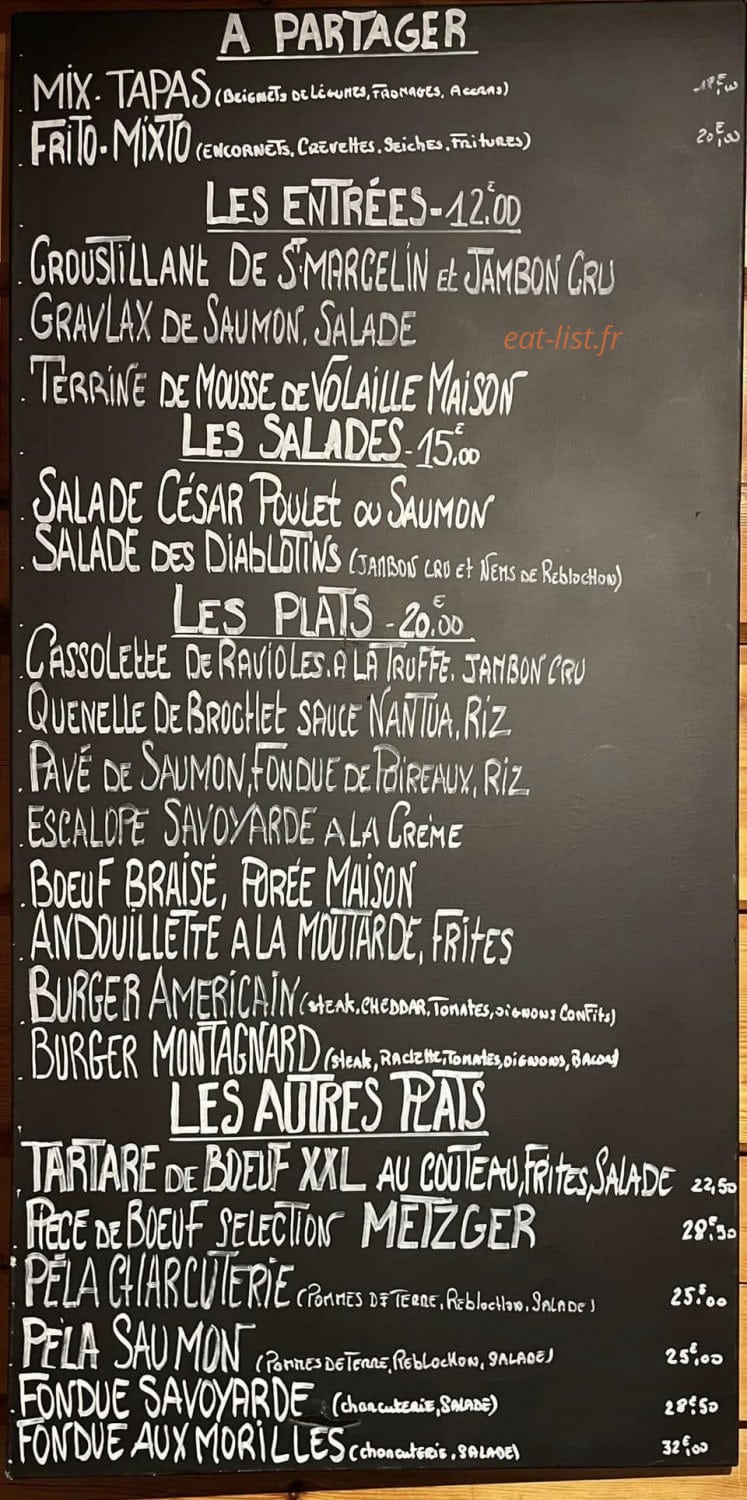 A PARTAGER
. MIX. TAPAS (BEIGNETS DE LÉGUMES, FROMAGES. ACCRAS)
. FRITO-MIXTO (ENCORNETS. CREVETTES. SEICHES. FRITURES) 20€,00
LES ENTRÉES-12€.00
. CROUSTILLANT DE ST.MARCELIN et JAMBON CRU
. GRAVLAX DE SAUMON. SALADE
eat-list.fr
. TERRINE DE MOUSSE DE VOLAILLE MAISON
LES SALADES-15€.00
. SALADE CÉSAR POULET OU SAUMON
. SALADE DES DIABLOTINS (JAMBON CRU et NEMS DE REBLOCHON)
LES PLATS -20€.00
. CASSOLETTE DE RAVIOLES.A LA TRUFFE. JAMBON CRU
. QUENELLE DE BROCHET SAUCE NANTUA, RIZ
. PAVÉ DE SAUMON, FONDUE DE POIREAUX, RIZ
. ESCALOPE SAVOYARDE A LA CRÈME
. BOEUF BRAISÉ, PURÉE MAISON
. ANDOUILLETTE A LA MOUTARDE, FRITES
. BURGER AMERICAIN (STEAK, CHEDDAR, TOMATES, OIGNONS CONFITS)
. BURGER MONTAGNARD (STEAK, RACLETTE, TOMATES, OIGNONS, BACON)
LES AUTRES PLATS
. TARTARE DE BOEUF XXL AU COUTEAU, FRITES, SALADE 22,50
. PIECE DE BOEUF SELECTION METZGER 28€.50
. PÉLA CHARCUTERIE (POMMES DE TERRE, REBLOCHON, SALADE) 25€.00
. PÉLA SAUMON (POMMES DE TERRE, REBLOCHON, SALADE) 25€,00
. FONDUE SAVOYARDE (charcuterie, SALADE) 28€50
. FONDUE AUX MORILLES (charcuterie, SALADE) 32€,00